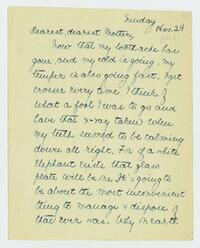 Sunday
Nov. 24
Dearest, dearest Mother,
Now that my toothache has
gone and my cold is going, my
temper is also going fast. I get
crosser every time I think of
what a fool I was to go and
have that x-ray taken when
my teeth seemed to be calming
down all right. For if a white
elephant exists that glass
plate will be one. It's going to
be about the most inconvenient
thing to manage & dispose of
that ever was. Why on earth